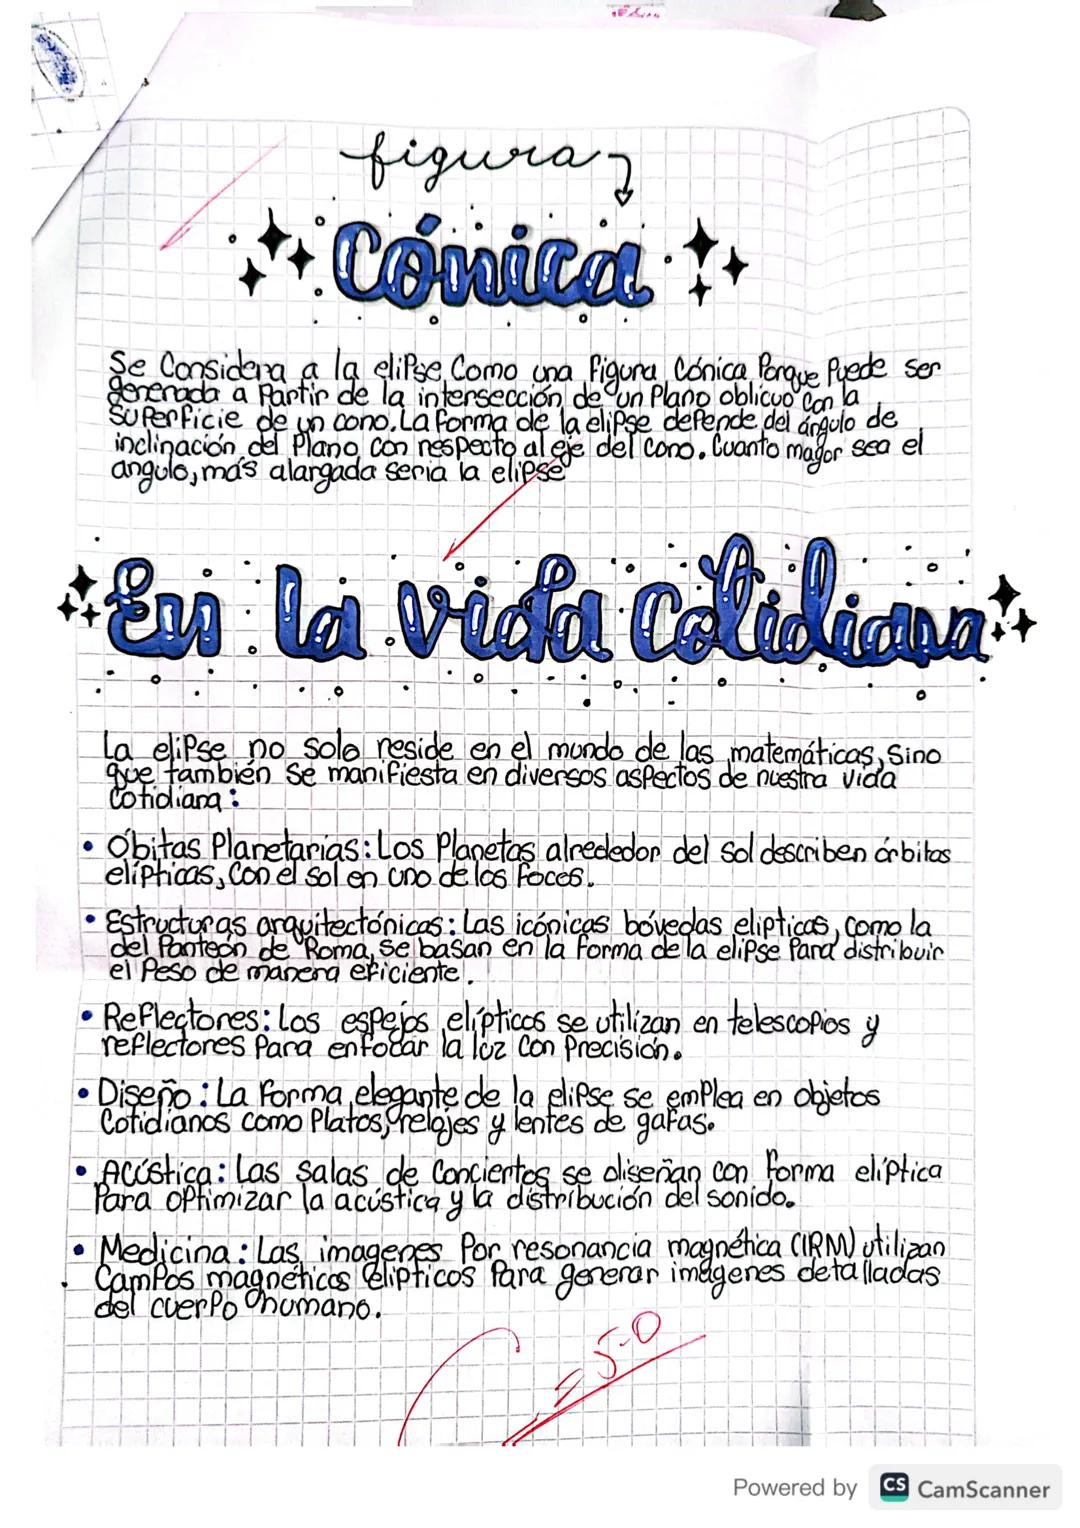 figura
Cónica
Se Considera a la elipse Como una figura Cónica Porque Puede ser
generada a Partir de la intersección de un Plano oblicuo con la
Superficie de un cono. La forma de la elipse depende del ángulo de
inclinación del Plano con respecto al eje del Cono. Cuanto mayor sea el
angulo, más alargada seria la elipse
En la vida Cotidiana
La elipse no solo reside en el mundo de las matemáticas, Sino
que también Se manifiesta en diversos aspectos de nuestra vida
Cotidiana:
• Óbitas Planetarias: Los Planetas alrededor del sol describen órbitas
elípticas, Con el sol en uno de los foces.
• Estructuras arquitectónicas: Las icónicas bóvedas elipticas, como la
del Panteón de Roma, se basan en la forma de la elipse Para distribuir
el Peso de manera eficiente.
• Reflectores: Los espejos elípticos se utilizan en telescopios y
reflectores Para enfocar la luz Con Precisión.
• Diseño: La forma elegante de la elipse se emplea en objetos
Cotidianos como Platos, relojes y lentes de gafas.
• Acústica: Las Salas de Conciertos se diseñan con forma elíptica
Para optimizar la acústica y la distribución del sonido.
• Medicina: Las imagenes Por resonancia magnética (IRM) utilizan
Campos magnéticos elipticos Para generar imágenes detalladas
del cuerpo humano.
5.0
Powered by CS CamScanner